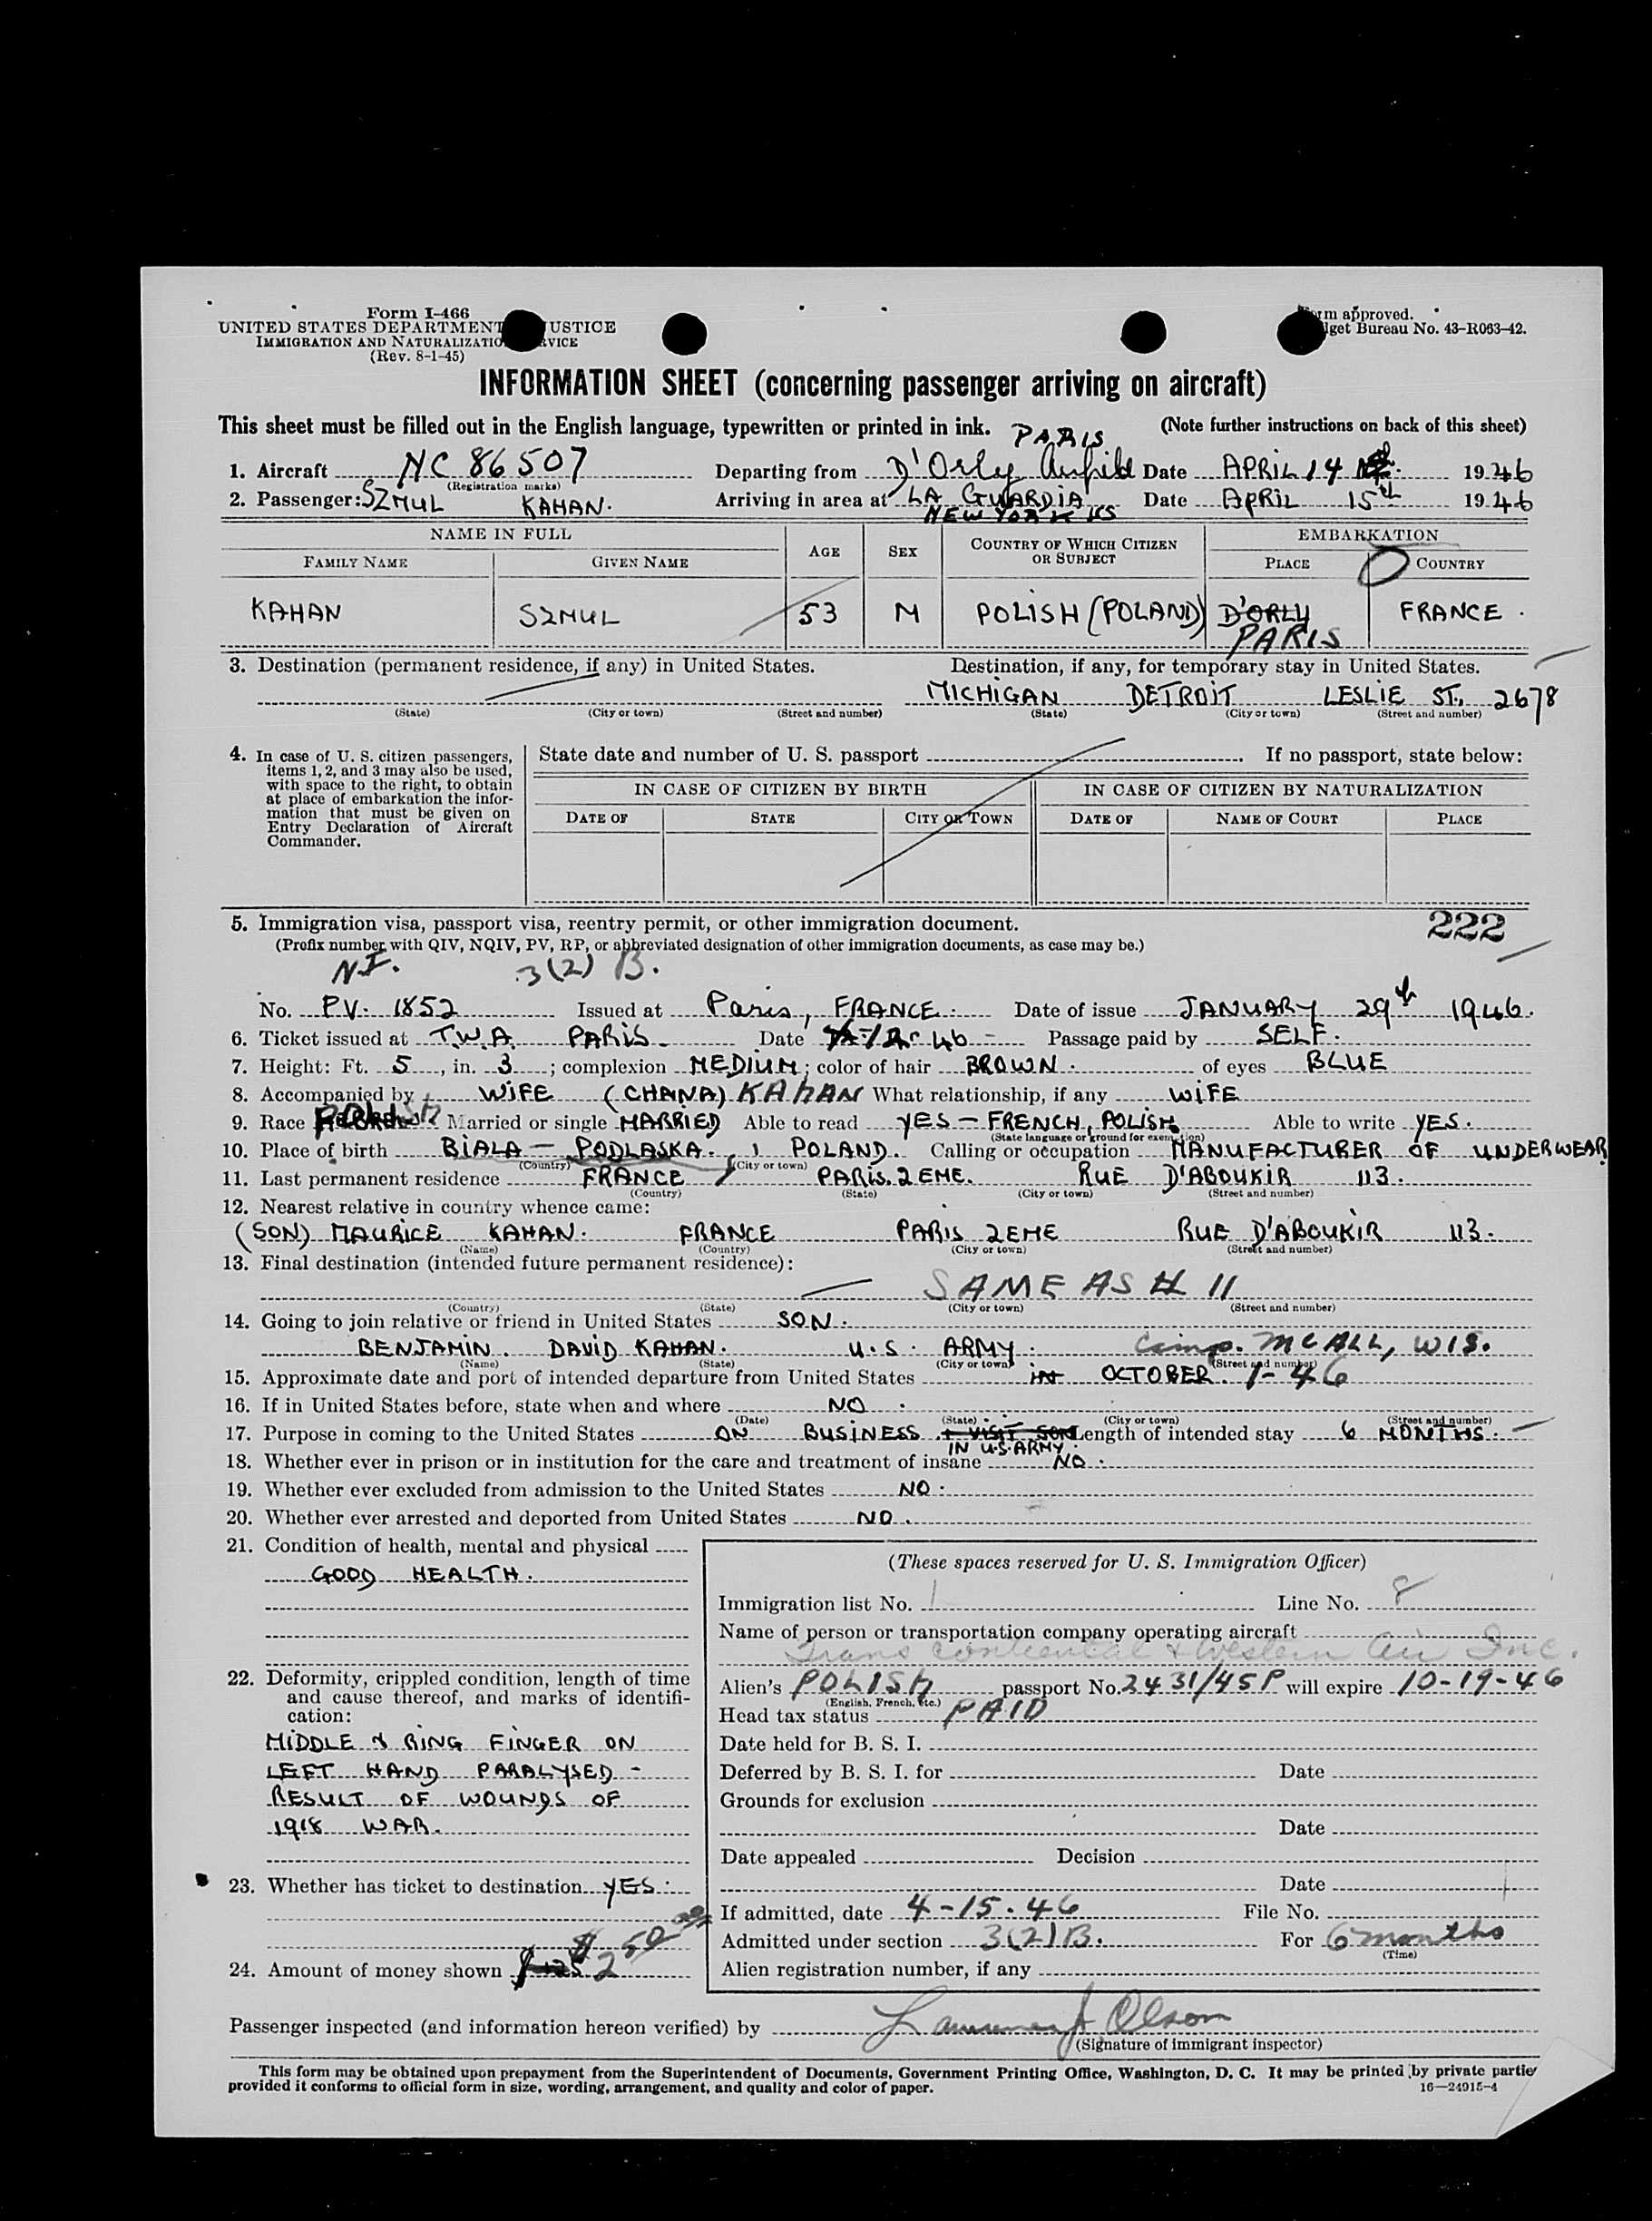 Form I-466
UNITED STATES DEPARTMENT JUSTICE
IMMIGRATION AND NATURALIZATIO RVICE
(Rev. 8-1-45)
rm approved.
get Bureau No. 43-R063-42.
INFORMATION SHEET (concerning passenger arriving on aircraft)
This sheet must be filled out in the English language, typewritten or printed in ink. (Note further instructions on back of this sheet)
PARIS
1. Aircraft NC 86507 Departing from D'Orly Airfield Date APRIL 14 1946
(Registration marks)
2. Passenger: SZMUL KAHAN. Arriving in area at LA GUARDIA Date APRIL 15th 1946
NEW YORK KS
NAME IN FULL AGE SEX COUNTRY OF WHICH CITIZEN OR SUBJECT EMBARKATION
FAMILY NAME GIVEN NAME PLACE COUNTRY
KAHAN SZMUL 53 M POLISH (POLAND) D'ORLY FRANCE.
PARIS
3. Destination (permanent residence, if any) in United States. Destination, if any, for temporary stay in United States.
MICHIGAN DETROIT LESLIE ST., 2678
(State) (City or town) (Street and number) (State) (City or town) (Street and number)
4. In case of U. S. citizen passengers, items 1, 2, and 3 may also be used, with space to the right, to obtain at place of embarkation the information that must be given on Entry Declaration of Aircraft Commander.
State date and number of U. S. passport If no passport, state below:
IN CASE OF CITIZEN BY BIRTH IN CASE OF CITIZEN BY NATURALIZATION
DATE OF STATE CITY OR TOWN DATE OF NAME OF COURT PLACE
5. Immigration visa, passport visa, reentry permit, or other immigration document. 222
(Prefix number with QIV, NQIV, PV, RP, or abbreviated designation of other immigration documents, as case may be.)
N.I. 3(2) B.
No. P.V. 1852 Issued at Paris, FRANCE. Date of issue JANUARY 29th 1946.
6. Ticket issued at T.W.A. PARIS. Date 46 - Passage paid by SELF.
7. Height: Ft. 5, in. 3; complexion MEDIUM; color of hair BROWN. of eyes BLUE
8. Accompanied by WIFE (CHANA) KAHAN What relationship, if any WIFE
9. Race POLISH Married or single MARRIED Able to read YES - FRENCH, POLISH Able to write YES.
(State language or ground for exemption)
10. Place of birth BIALA - PODLASKA., POLAND. Calling or occupation MANUFACTURER OF UNDERWEAR
(Country) (City or town)
11. Last permanent residence FRANCE PARIS. 2 EME. RUE D'ABOUKIR 113.
(Country) (State) (City or town) (Street and number)
12. Nearest relative in country whence came:
(SON) MAURICE KAHAN. FRANCE PARIS 2EME RUE D'ABOUKIR 113.
(Name) (Country) (City or town) (Street and number)
13. Final destination (intended future permanent residence):
SAME AS # 11
(Country) (State) (City or town) (Street and number)
14. Going to join relative or friend in United States SON.
BENJAMIN. DAVID KAHAN. U.S. ARMY. Camp. McALL, WIS.
(Name) (State) (City or town) (Street and number)
15. Approximate date and port of intended departure from United States in OCTOBER. 1-46
16. If in United States before, state when and where NO.
(Date) (State) (City or town) (Street and number)
17. Purpose in coming to the United States ON BUSINESS + VISIT SON Length of intended stay 6 MONTHS.
IN U.S. ARMY.
18. Whether ever in prison or in institution for the care and treatment of insane NO.
19. Whether ever excluded from admission to the United States NO.
20. Whether ever arrested and deported from United States NO.
21. Condition of health, mental and physical
GOOD HEALTH.
22. Deformity, crippled condition, length of time
and cause thereof, and marks of identifi-
cation:
MIDDLE & RING FINGER ON
LEFT HAND PARALYSED -
RESULT OF WOUNDS OF
1918 WAR.
23. Whether has ticket to destination YES.
24. Amount of money shown $125 $250
(These spaces reserved for U. S. Immigration Officer)
Immigration list No. 1 Line No. 8
Name of person or transportation company operating aircraft
Trans continental & Western Air Inc.
Alien's POLISH passport No. 2431/45P will expire 10-19-46
(English, French, etc.)
Head tax status PAID
Date held for B. S. I.
Deferred by B. S. I. for Date
Grounds for exclusion
Date
Date appealed Decision
Date
If admitted, date 4-15-46 File No.
Admitted under section 3(2)B. For 6 months
(Time)
Alien registration number, if any
Passenger inspected (and information hereon verified) by Lawrence A. Olson
(Signature of immigrant inspector)
This form may be obtained upon prepayment from the Superintendent of Documents, Government Printing Office, Washington, D. C. It may be printed by private partie
provided it conforms to official form in size, wording, arrangement, and quality and color of paper. 16—24915-4